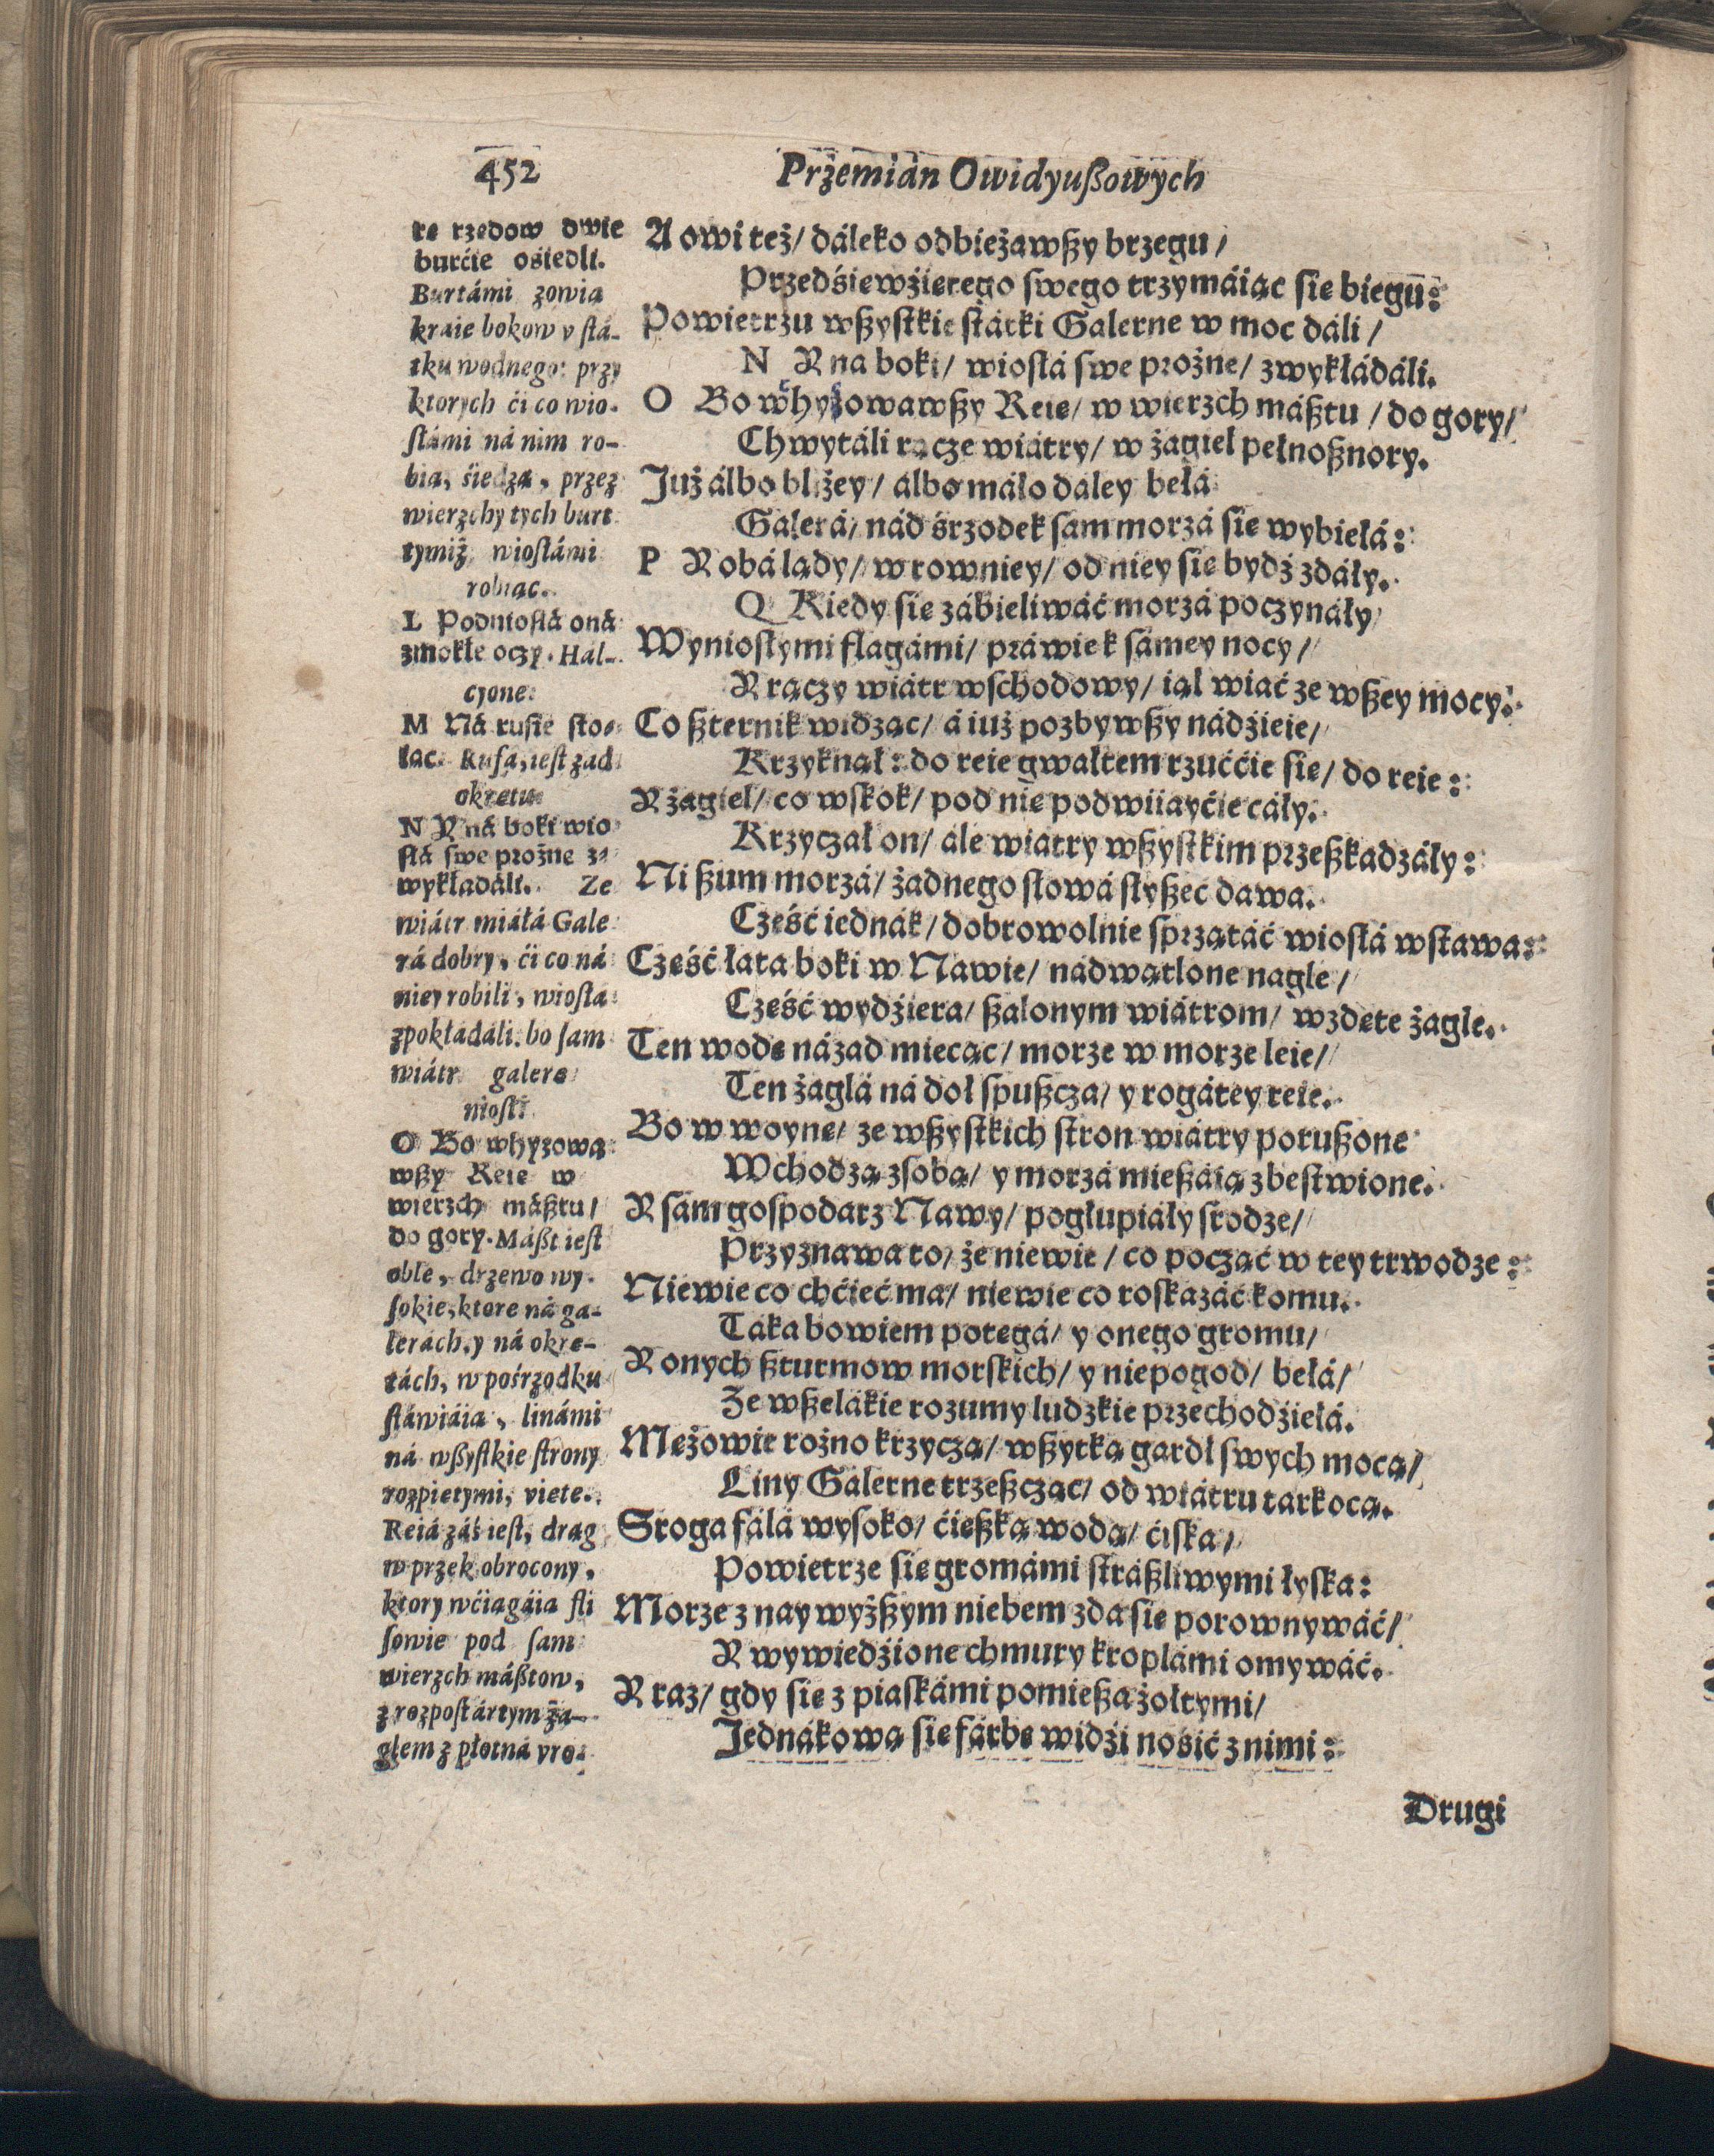 452
Przemián Owidyußowych
re rzedow dwie
burćie ośiedli.
Burtámi zowią
kraie bokow v ſtá-
tku wodnego: przy
ktorych ći co wio-
ſłámi ná nim ro-
bią, śiedzą, przez
wierzchy tych burt
tymiż wioſłámi
robiąc.
L Podnioſłá oná
zmokłe oczy. Hál-
cyone.
M Ná rufie ſto-
iąc. Rufá, ieſt zad
okrętu.
N Y ná boki wio
ſłá ſwe prożne z-
wykłádáli. Ze
wiátr miáłá Gale
rá dobry, ći co ná
niey robili, wioſłá
zpokłádáli: bo ſam
wiátr galerę
nioſł.
O Bo whyzowa
wßy Reie w
wierzch máßtu/
do gory. Máßt ieſt
oble, drzewo wy-
ſokie, ktore ná ga-
lerách, y ná okrę-
tách, w pośrzodku
ſtáwiáią, linámi
ná wßyſtkie ſtrony
rozpiętymi, vięte.
Reiá záś ieſt, drąg
w przek obrocony,
ktory wćiągáią fli
ſowie pod ſam
wierzch máßtow,
z rozpoſtártym ża-
glem z płotná vro-
A owi też/ dáleko odbieżawßy brzegu/
Przedśiewźiętego ſwego trzymáiąc ſie biegu:
Powietrzu wßyſtkie ſtátki Galerne w moc dáli/
N Y na boki/ wioſłá ſwe prożne/ zwykłádáli.
O Bo whyzowawßy Reie/ w wierzch máßtu/ do gory/
Chwytáli rącze wiátry/ w żagiel pełnoßnory.
Już álbo bliżey/ álbo máło daley belá
Galerá/ nád śrzodek ſam morzá ſie wybielá:
P Y obá lądy/ w rowniey/ od niey ſie bydź zdáły.
Q Kiedy ſie zábieliwáć morzá poczynáły
Wynioſłymi flagámi/ práwie k ſámey nocy/
Y rączy wiátr wſchodowy/ iął wiać ze wßey mocy.
Co ßternik widząc/ á iuż pozbywßy nádźieie/
Krzyknął: do reie gwałtem rzuććie ſie/ do reie:
Y żagiel/ co wſkok/ pod nię podwiiayćie cáły.
Krzyczał on/ ále wiatry wßyſtkim przeßkadzáły:
Ni ßum morzá/ żadnego ſłowá ſłyßeć dawa.
Część iednák/ dobrowolnie ſprzątáć wioſłá wſtawa:
Część łata boki w Nawie/ nádwątlone nagle/
Część wydźiera/ ßalonym wiátrom/ wzdęte żagle.
Ten wodę názad miecąc/ morze w morze leie/
Ten żaglá ná doł ſpußcza/ y rogátey reie.
Bo w woynę/ ze wßyſtkich ſtron wiátry porußone
Wchodzą z ſobą/ y morzá mießáią zbeſtwione.
Y ſám goſpodarz Nawy/ pogłupiáły ſrodze/
Przyznawa to/ że nie wie/ co począć w tey trwodze:
Niewie co chćieć ma/ niewie co roſkázáć komu.
Táka bowiem potęgá/ y onego gromu/
Y onych ßturmow morskich/ y niepogod/ belá/
Ze wßelákie rozumy ludzkie przechodźiełá.
Mężowie rożno krzyczą/ wßytką gardł ſwych mocą/
Liny Gálerne trzeßcząc/ od wiátru tarkocą.
Sroga fálá wyſoko/ ćießką wodą/ ćiſka/
Powietrze ſie gromámi ſtráßliwymi łyska:
Morze z naywyżßym niebem zda ſie porownywáć/
Y wywiedźione chmury kroplámi omywáć.
Y raz/ gdy ſie z piaſkámi pomießa żołtymi/
Jednákową ſie fárbę widźi nośić z nimi:
Drugi